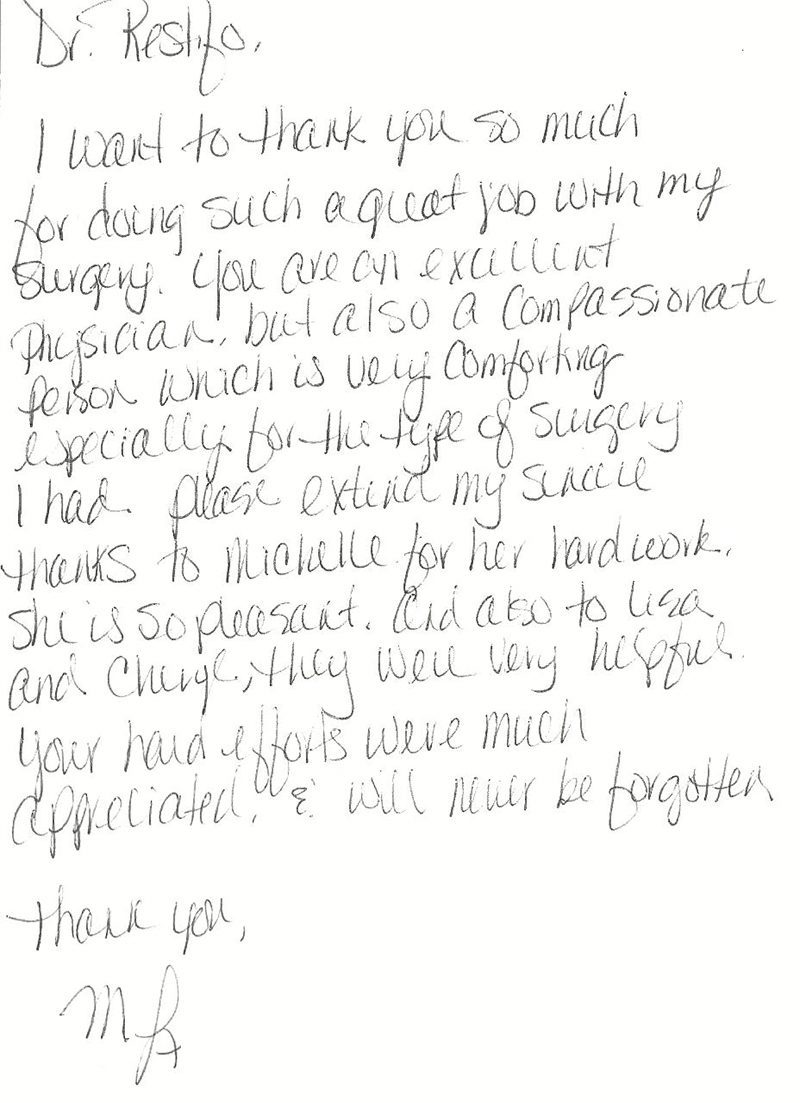 Dr. Restifo,
I want to thank you so much
for doing such a great job with my
surgery. You are an excellent
physician, but also a compassionate
person which is very comforting
especially for the type of surgery
I had. please extend my sincere
thanks to Michelle for her hard work.
She is so pleasant. And also to Lisa
and Cheryl, they were very helpful.
Your hard efforts were much
appreciated, & will never be forgotten
thank you,
M